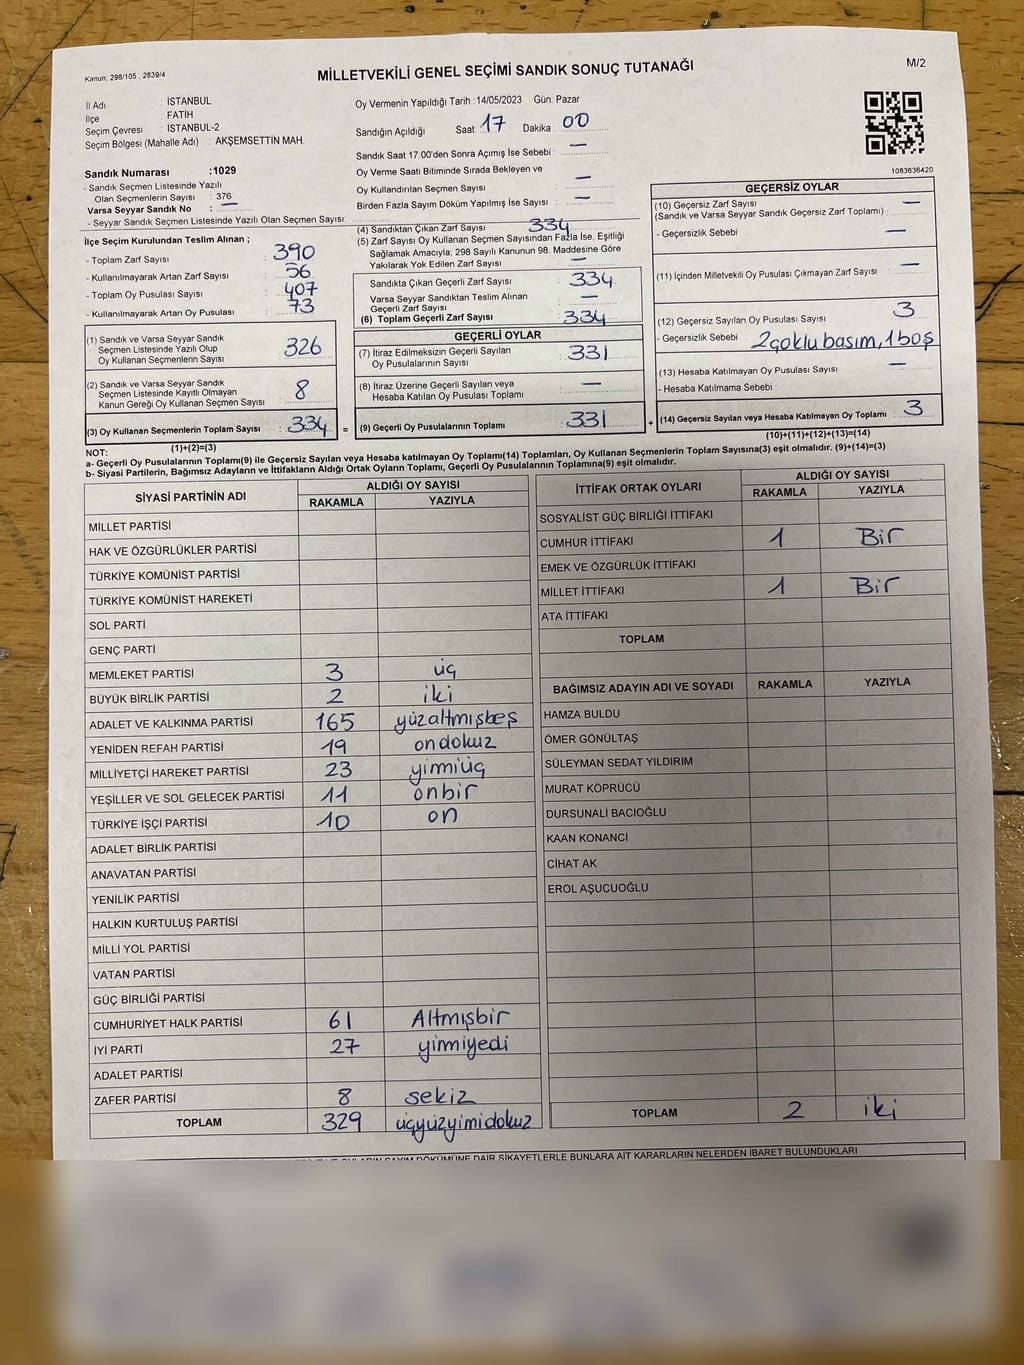 Kanun; 298/105 , 2839/4
MİLLETVEKİLİ GENEL SEÇİMİ SANDIK SONUÇ TUTANAĞI
M/2
İl Adı : İSTANBUL
İlçe : FATİH
Seçim Çevresi : İSTANBUL-2
Seçim Bölgesi (Mahalle Adı) : AKŞEMSETTİN MAH.
Oy Vermenin Yapıldığı Tarih :14/05/2023 Gün: Pazar
Sandığın Açıldığı Saat: 17 Dakika : 00
Sandık Saat 17:00'den Sonra Açımış İse Sebebi : —
Oy Verme Saati Bitiminde Sırada Bekleyen ve
Oy Kullandırılan Seçmen Sayısı : —
Birden Fazla Sayım Döküm Yapılmış İse Sayısı : —
1083636420
Sandık Numarası :1029
- Sandık Seçmen Listesinde Yazılı
Olan Seçmenlerin Sayısı : 376
Varsa Seyyar Sandık No : —
- Seyyar Sandık Seçmen Listesinde Yazılı Olan Seçmen Sayısı:
İlçe Seçim Kurulundan Teslim Alınan ;
- Toplam Zarf Sayısı : 390
- Kullanılmayarak Artan Zarf Sayısı : 56
- Toplam Oy Pusulası Sayısı : 407
- Kullanılmayarak Artan Oy Pusulası : 73
(1) Sandık ve Varsa Seyyar Sandık
Seçmen Listesinde Yazılı Olup
Oy Kullanan Seçmenlerin Sayısı : 326
(2) Sandık ve Varsa Seyyar Sandık
Seçmen Listesinde Kayıtlı Olmayan
Kanun Gereği Oy Kullanan Seçmen Sayısı : 8
(3) Oy Kullanan Seçmenlerin Toplam Sayısı : 334 =
(1)+(2)=(3)
(4) Sandıktan Çıkan Zarf Sayısı : 334
(5) Zarf Sayısı Oy Kullanan Seçmen Sayısından Fazla İse, Eşitliği
Sağlamak Amacıyla; 298 Sayılı Kanunun 98. Maddesine Göre
Yakılarak Yok Edilen Zarf Sayısı : —
Sandıkta Çıkan Geçerli Zarf Sayısı : 334
Varsa Seyyar Sandıktan Teslim Alınan
Geçerli Zarf Sayısı : —
(6) Toplam Geçerli Zarf Sayısı : 334
GEÇERLİ OYLAR
(7) İtiraz Edilmeksizin Geçerli Sayılan
Oy Pusulalarının Sayısı : 331
(8) İtiraz Üzerine Geçerli Sayılan veya
Hesaba Katılan Oy Pusulası Toplamı : —
(9) Geçerli Oy Pusulalarının Toplamı : 331 +
GEÇERSİZ OYLAR
(10) Geçersiz Zarf Sayısı
(Sandık ve Varsa Seyyar Sandık Geçersiz Zarf Toplamı) : —
- Geçersizlik Sebebi : —
(11) İçinden Milletvekili Oy Pusulası Çıkmayan Zarf Sayısı : —
(12) Geçersiz Sayılan Oy Pusulası Sayısı : 3
- Geçersizlik Sebebi : 2 çoklu basım, 1 boş
(13) Hesaba Katılmayan Oy Pusulası Sayısı : —
- Hesaba Katılmama Sebebi :
(14) Geçersiz Sayılan veya Hesaba Katılmayan Oy Toplamı : 3
(10)+(11)+(12)+(13)=(14)
NOT:
a- Geçerli Oy Pusulalarının Toplamı(9) ile Geçersiz Sayılan veya Hesaba katılmayan Oy Toplamı(14) Toplamları, Oy Kullanan Seçmenlerin Toplam Sayısına(3) eşit olmalıdır. (9)+(14)=(3)
b- Siyasi Partilerin, Bağımsız Adayların ve İttifakların Aldığı Ortak Oyların Toplamı, Geçerli Oy Pusulalarının Toplamına(9) eşit olmalıdır.
SİYASİ PARTİNİN ADI
ALDIĞI OY SAYISI
RAKAMLA YAZIYLA
MİLLET PARTİSİ
HAK VE ÖZGÜRLÜKLER PARTİSİ
TÜRKİYE KOMÜNİST PARTİSİ
TÜRKİYE KOMÜNİST HAREKETİ
SOL PARTİ
GENÇ PARTİ
MEMLEKET PARTİSİ 3 üç
BÜYÜK BİRLİK PARTİSİ 2 iki
ADALET VE KALKINMA PARTİSİ 165 yüzaltmışbeş
YENİDEN REFAH PARTİSİ 19 ondokuz
MİLLİYETÇİ HAREKET PARTİSİ 23 yirmiüç
YEŞİLLER VE SOL GELECEK PARTİSİ 11 onbir
TÜRKİYE İŞÇİ PARTİSİ 10 on
ADALET BİRLİK PARTİSİ
ANAVATAN PARTİSİ
YENİLİK PARTİSİ
HALKIN KURTULUŞ PARTİSİ
MİLLİ YOL PARTİSİ
VATAN PARTİSİ
GÜÇ BİRLİĞİ PARTİSİ
CUMHURİYET HALK PARTİSİ 61 Altmışbir
İYİ PARTİ 27 yirmiyedi
ADALET PARTİSİ
ZAFER PARTİSİ 8 sekiz
TOPLAM 329 üçyüzyimidokuz
İTTİFAK ORTAK OYLARI
ALDIĞI OY SAYISI
RAKAMLA YAZIYLA
SOSYALİST GÜÇ BİRLİĞİ İTTİFAKI
CUMHUR İTTİFAKI 1 Bir
EMEK VE ÖZGÜRLÜK İTTİFAKI
MİLLET İTTİFAKI 1 Bir
ATA İTTİFAKI
TOPLAM
BAĞIMSIZ ADAYIN ADI VE SOYADI RAKAMLA YAZIYLA
HAMZA BULDU
ÖMER GÖNÜLTAŞ
SÜLEYMAN SEDAT YILDIRIM
MURAT KÖPRÜCÜ
DURSUNALİ BACIOĞLU
KAAN KONANCİ
CİHAT AK
EROL AŞUCUOĞLU
TOPLAM 2 iki
OYLARIN SAYIM DÖKÜMÜNE DAİR ŞİKAYETLERLE BUNLARA AİT KARARLARIN NELERDEN İBARET BULUNDUKLARI